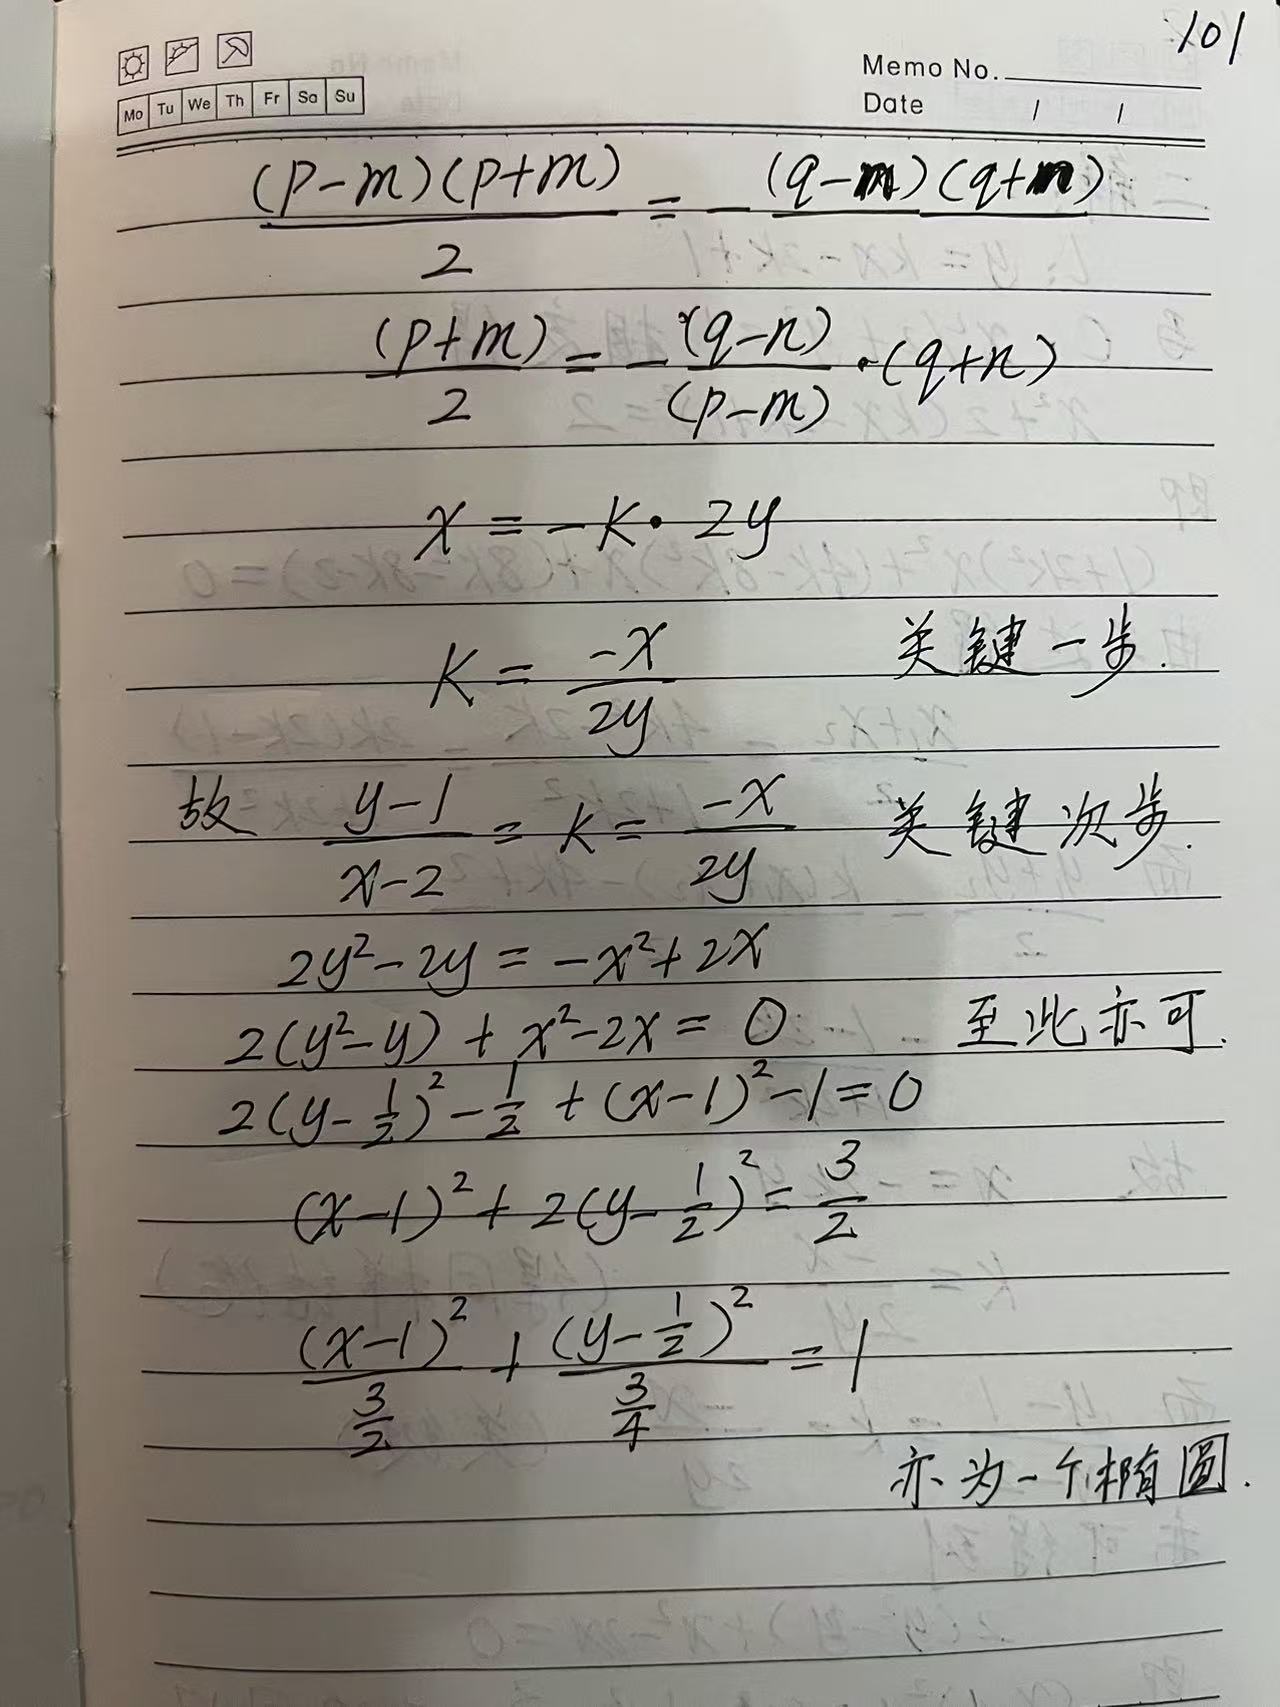 101
Memo No.
Mo Tu We Th Fr Sa Su
Date / /
(p-m)(p+m)/2 = -(q-n)(q+n)
(p+m)/2 = -(q-n)/(p-m)·(q+n)
x = -k·2y
k = -x/2y 关键一步.
故 y-1/x-2 = k = -x/2y 关键次步.
2y²-2y = -x²+2x
2(y²-y) + x²-2x = 0 至此亦可.
2(y-1/2)²-1/2+(x-1)²-1=0
(x-1)²+2(y-1/2)²=3/2
(x-1)²/(3/2) + (y-1/2)²/(3/4) = 1
亦为一个椭圆.